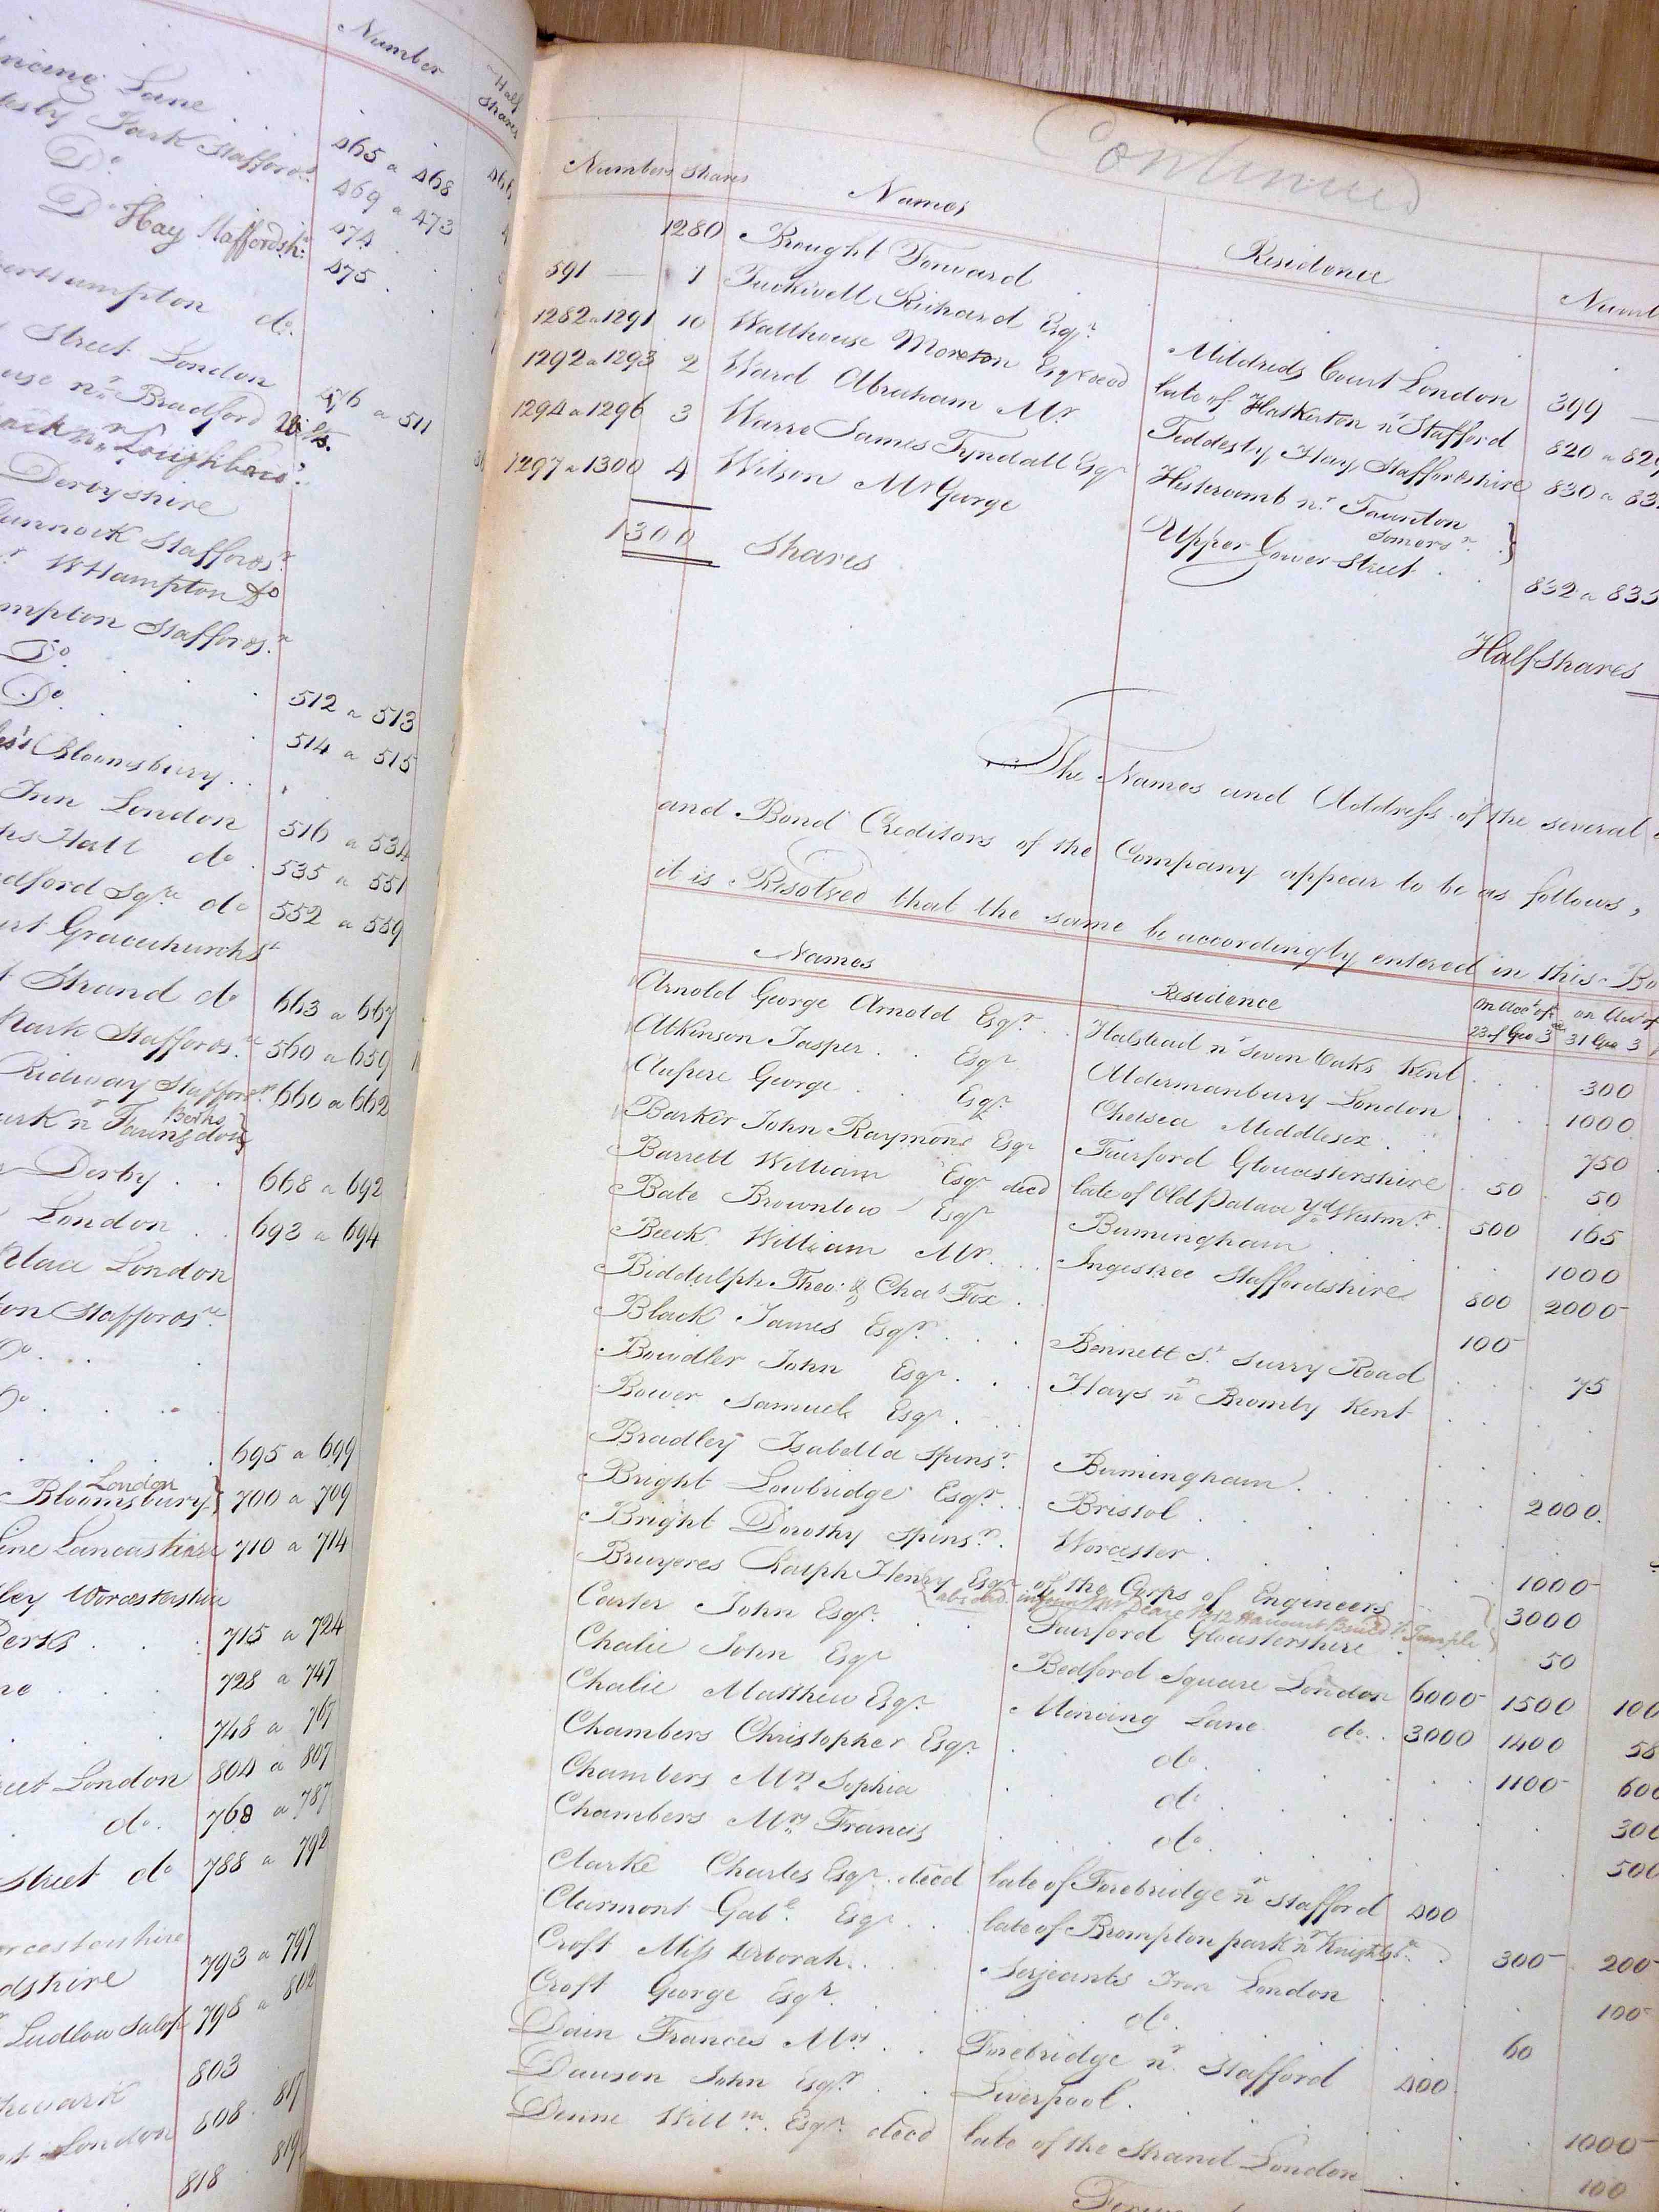 Number
Half Shares
Lane
Park Staffords.
465 a 468
Do.
469 a 473
Do. Hay Staffordsh:
474
475
do.
Street London
476 a 511
nr. Bradford Wilts.
Derbyshire
Cannock Staffords.r
W Hampton Do
Staffords.r
Do.
Do.
512 a 513
514 a 515
Bloomsbury
Inn London
516 a 534
Hall do
535 a 551
Bedford Sqre do
552 a 559
Court Gracechurch St
Strand do
663 a 667
Park Staffords.
560 a 659
Ridway Staffor
660 a 662
Berks
nr Faringdon
Derby
668 a 692
London
693 a 694
Place London
Staffords.re
Do.
Do.
695 a 699
London
Bloomsbury
700 a 709
Line Lancastire
710 a 714
Worcestershire
Berks
715 a 724
728 a 747
748 a 767
Street London
804 a 807
do.
768 a 787
Street do
788 a 792
Worcestershire
793 a 797
Ludlow Salop
798 a 802
803
London
808 817
818 819
Continued
Numbers Shares Names Residence Numb
1280 Brought Forward
591 — 1 Tuckwell Richard Esqr. Mildreds Court London 399 —
1282 a 1291 10 Walhouse Moreton Esqr decd late of Haskerton nr Stafford 820 a 829
1292 a 1293 2 Ward Abraham Mr. Teddesley Hay Staffordshire 830 a 83
1294 a 1296 3 Warre James Tyndall Esqr Hestercomb nr. Taunton Somerst.
1297 a 1300 4 Wilson Mr George Upper Gower Street 832 a 833
1300 Shares
Half Shares
The Names and Address of the several
and Bond Creditors of the Company appear to be as follows,
it is Resolved that the same be accordingly entered in this Bo
Names Residence on Acct of 23d of Geo 3 on Acct of 31 Geo 3
Arnold George Arnold Esqr. Halstead nr Seven Oaks Kent 300
Atkinson Jasper Esqr Aldermanbury London 1000
Aufrere George Esqr. Chelsea Middlesex 750
Barker John Raymond Esqr Fairford Gloucestershire 50 50
Barrett William Esqr decd late of Old Palace Yd Westmr. 500 165
Bate Brownlow Esqr Birmingham 1000
Beck William Mr. Ingestree Staffordshire 800 2000
Biddulph Theo: & Chas Fox 100
Black James Esqr. Bennett St. Surry Road 75
Bowdler John Esqr. Hays nr Bromly Kent
Bower Samuel Esqr.
Bradley Isabella Spinsr. Birmingham 2000.
Bright Lowbridge Esqr. Bristol
Bright Dorothy Spinsr. Worcester 1000
Bruyeres Ralph Henry Esqr of the Corps of Engineers 3000
Carter John Esqr. Fairford Glocestershire 50
Chalie John Esqr Bedford Square London 6000 1500 100
Chalie Matthew Esqr. Mincing Lane do. 3000 1400 58
Chambers Christopher Esqr. do. 1100 600
Chambers Mrs Sophia do. 300
Chambers Mrs Francis do. 500
Clarke Charles Esqr. decd late of Forebridge nr Stafford 400
Clarmont Gabl. Esqr. late of Brompton park nr Knightsb. 300 200
Croft Miss Deborah Serjeants Inn London 100
Croft George Esqr. do. 60
Dain Frances Mrs. Forebridge nr. Stafford 400
Dawson John Esqr. Liverpool. 1000
Denne Willm. Esqr. decd late of the Strand London 100